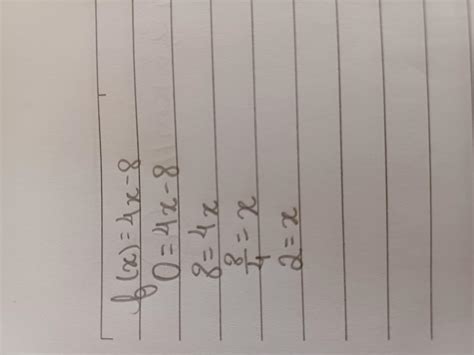 f(x) = 4x - 8
0 = 4x - 8
8 = 4x
8/4 = x
2 = x